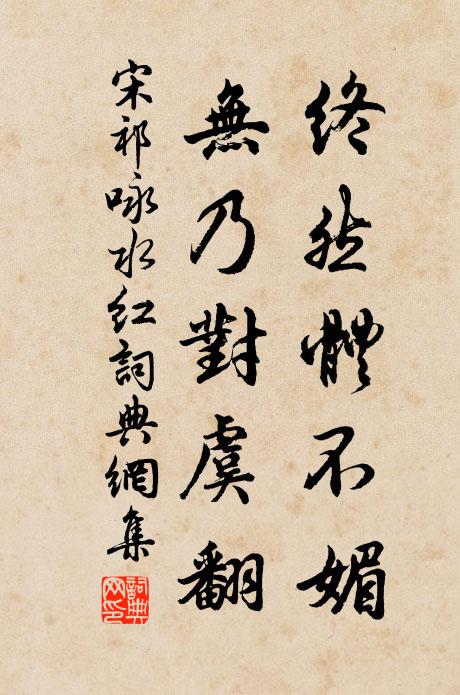 終然體不媚
無乃對虞翻
宋祁咏水红詞典網集
詞典网印